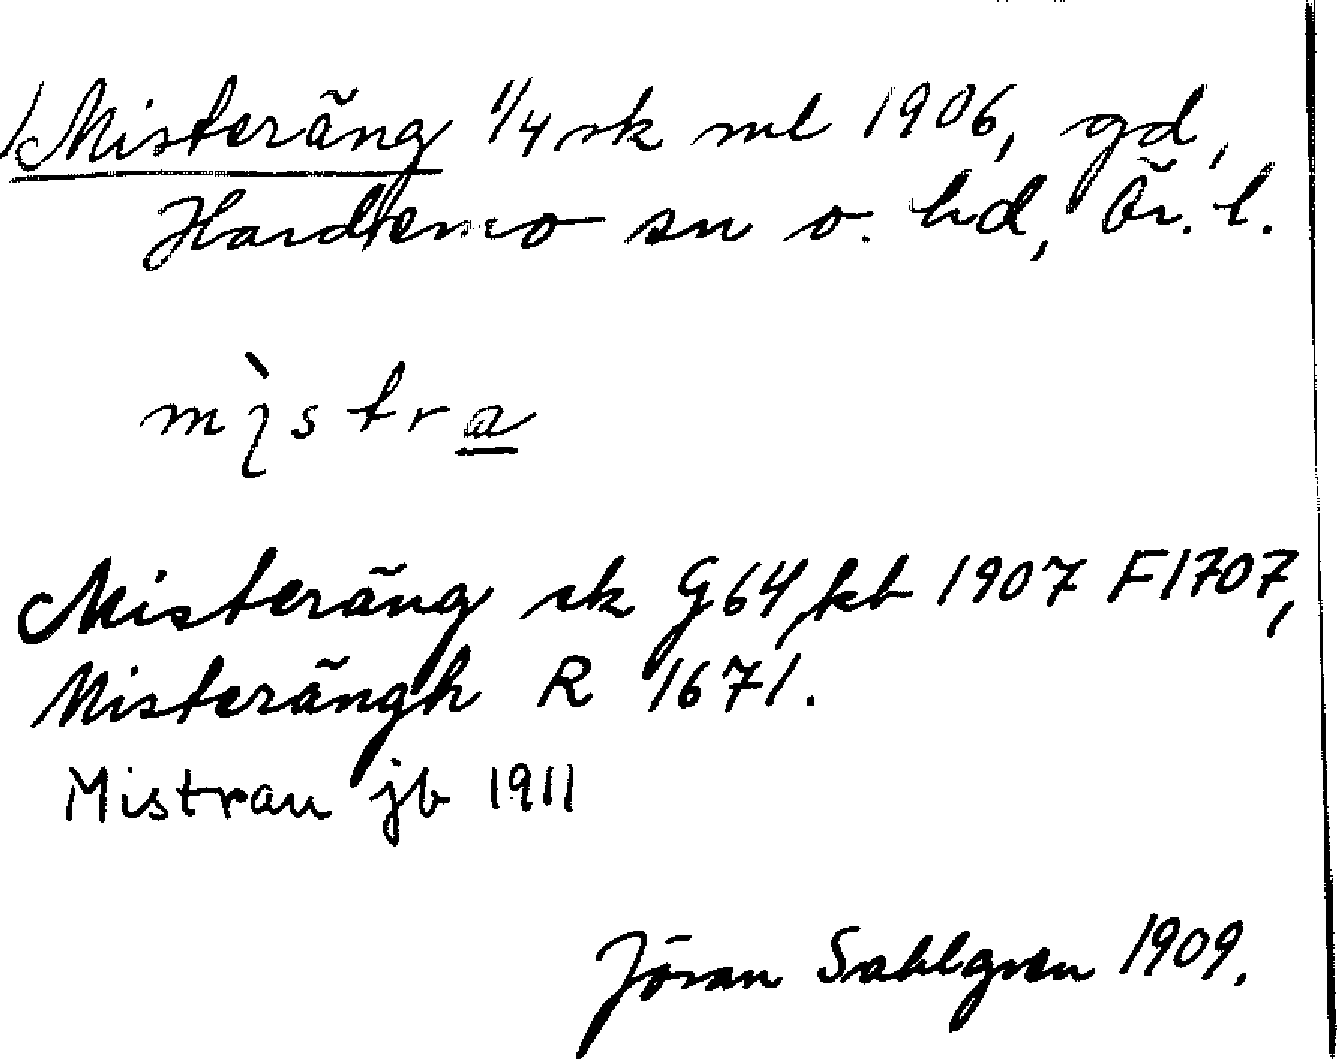 Misteräng 1/4 sk ml 1906, gd,
Hardemo sn o. hd, Ör. l.
mìstra
Misteräng sk G64, kb 1907 F1707,
Misterängh R 1671.
Mistrau jb 1911
Jöran Sahlgren 1909.